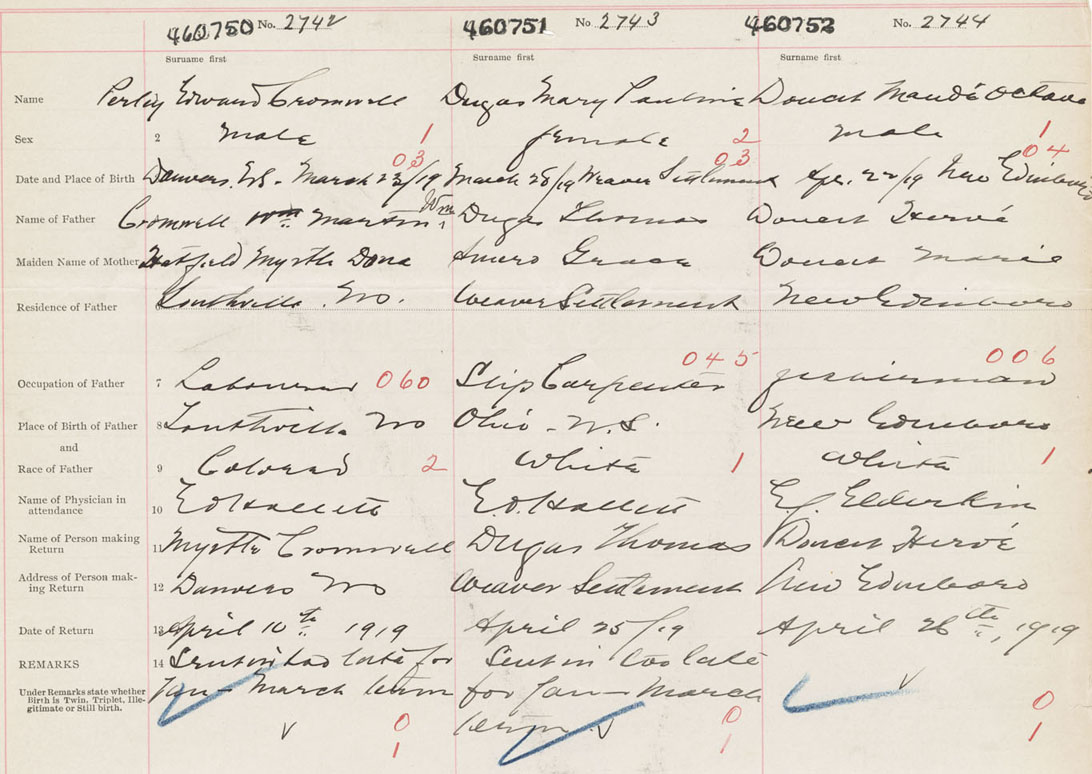 460750 No. 2742 460751 No 2743 460752 No. 2744
Surname first Surname first Surname first
Name Perley Edward Cromwell Dugas Mary Pauline Doucet Maudé Octave
Sex 2 male 1 female 2 male 1
03 03 04
Date and Place of Birth Danvers, N.S. March 23/19 March 28/19 Weaver Settlement Apr. 22/19 New Edinboro
Wm
Name of Father Cromwell Wm. Martin Dugas Thomas Doucet Hervé
Maiden Name of Mother Hatfield Myrtle Dona Amero Grace Doucet Marie
Residence of Father 6 Southville Weaver Settlement New Edinboro
045 006
Occupation of Father 7 Labourer 060 Ship Carpenter fisherman
Place of Birth of Father 8 Southville Ohio - N.S. New Edinboro
and
Race of Father 9 Colored 2 White 1 White 1
Name of Physician in
attendance 10 Ed Hallett Ed. Hallett E. Elderkin
Name of Person making
Return 11 Myrtle Cromwell Dugas Thomas Doucet Hervé
Address of Person mak-
ing Return 12 Danvers Weaver Settlement New Edinboro
Date of Return 13 April 10th 1919 April 25/19 April 26th, 1919
REMARKS 14 Sent in too late for Sent in too late
Under Remarks state whether
Birth is Twin, Triplet, Ille-
gitimate or Still birth.
Jan - March term for Jan - March
term
0 0 0
1 1 1